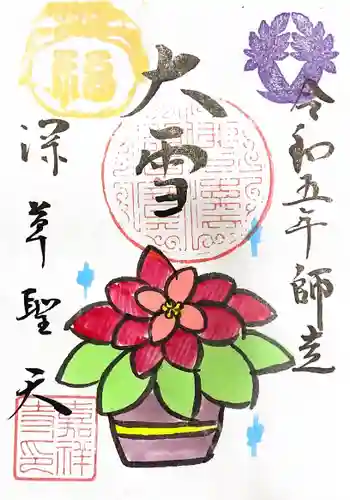 令和五年師走
大雪
深草聖天
福
嘉祥寺印